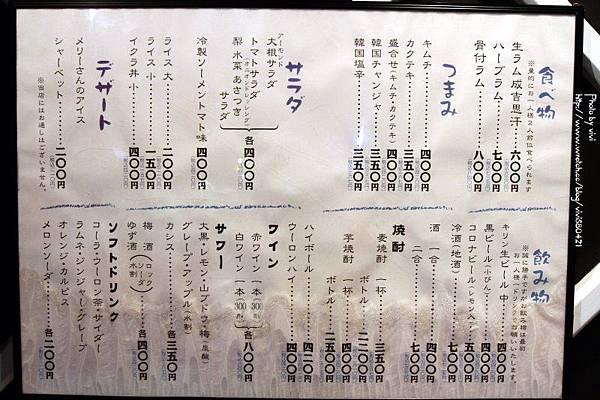 食べ物
※量的にお一人様２人前位食べられます
生ラム成吉思汗 六〇〇円
ハーブラム 七〇〇円
骨付ラム 八〇〇円
つまみ
キムチ 四〇〇円
カクテキ 三五〇円
盛合せ(キムチ・カクテキ) 四〇〇円
韓国チャンジャ 三五〇円
韓国塩辛 三五〇円
サラダ
アーモンド
大根サラダ
トマトサラダ
(オニオンドレッシング)
梨 水菜 あさつき
サラダ
各四〇〇円
冷製ソーメントマト味 四〇〇円
ライス 大 二〇〇円
ライス 小 一五〇円
イクラ丼 小 四〇〇円
デザート
メリーさんのアイス
シャーベット 二〇〇円
※当店にはお通しはございません。
飲み物
※誠に勝手ですがお飲み物は最初
お一人様一ドリンクでお願いいたします。
キリン 生ビール 中 四〇〇円
黒ビール(小びん) 四〇〇円
コロナビール(レモン入) 五〇〇円
冷酒(地酒) 七〇〇円
酒 一合 四〇〇円
二合 七〇〇円
焼酎
麦焼酎 一杯 三五〇円
ボトル
芋焼酎 一杯 四〇〇円
ボトル
ハイボール 四二〇円
ウーロンハイ 四〇〇円
ワイン
赤ワイン 一本(300ml)
白ワイン 一本(300ml)
各八〇〇円
サワー
大黒・レモン・山ブドウ・梅(炭酸)
グレープ・アップル(水割)
カシス 各三五〇円
梅酒(ロック ソーダ 水割)
ゆず酒 各四〇〇円
ソフトドリンク
コーラ・ウーロン茶・サイダー
ラムネ・ジンジャー・グレープ
オレンジ・カルピス
メロンソーダ 各二〇〇円
Photo by vivi
http://www.wretch.cc/blog/vivi880421